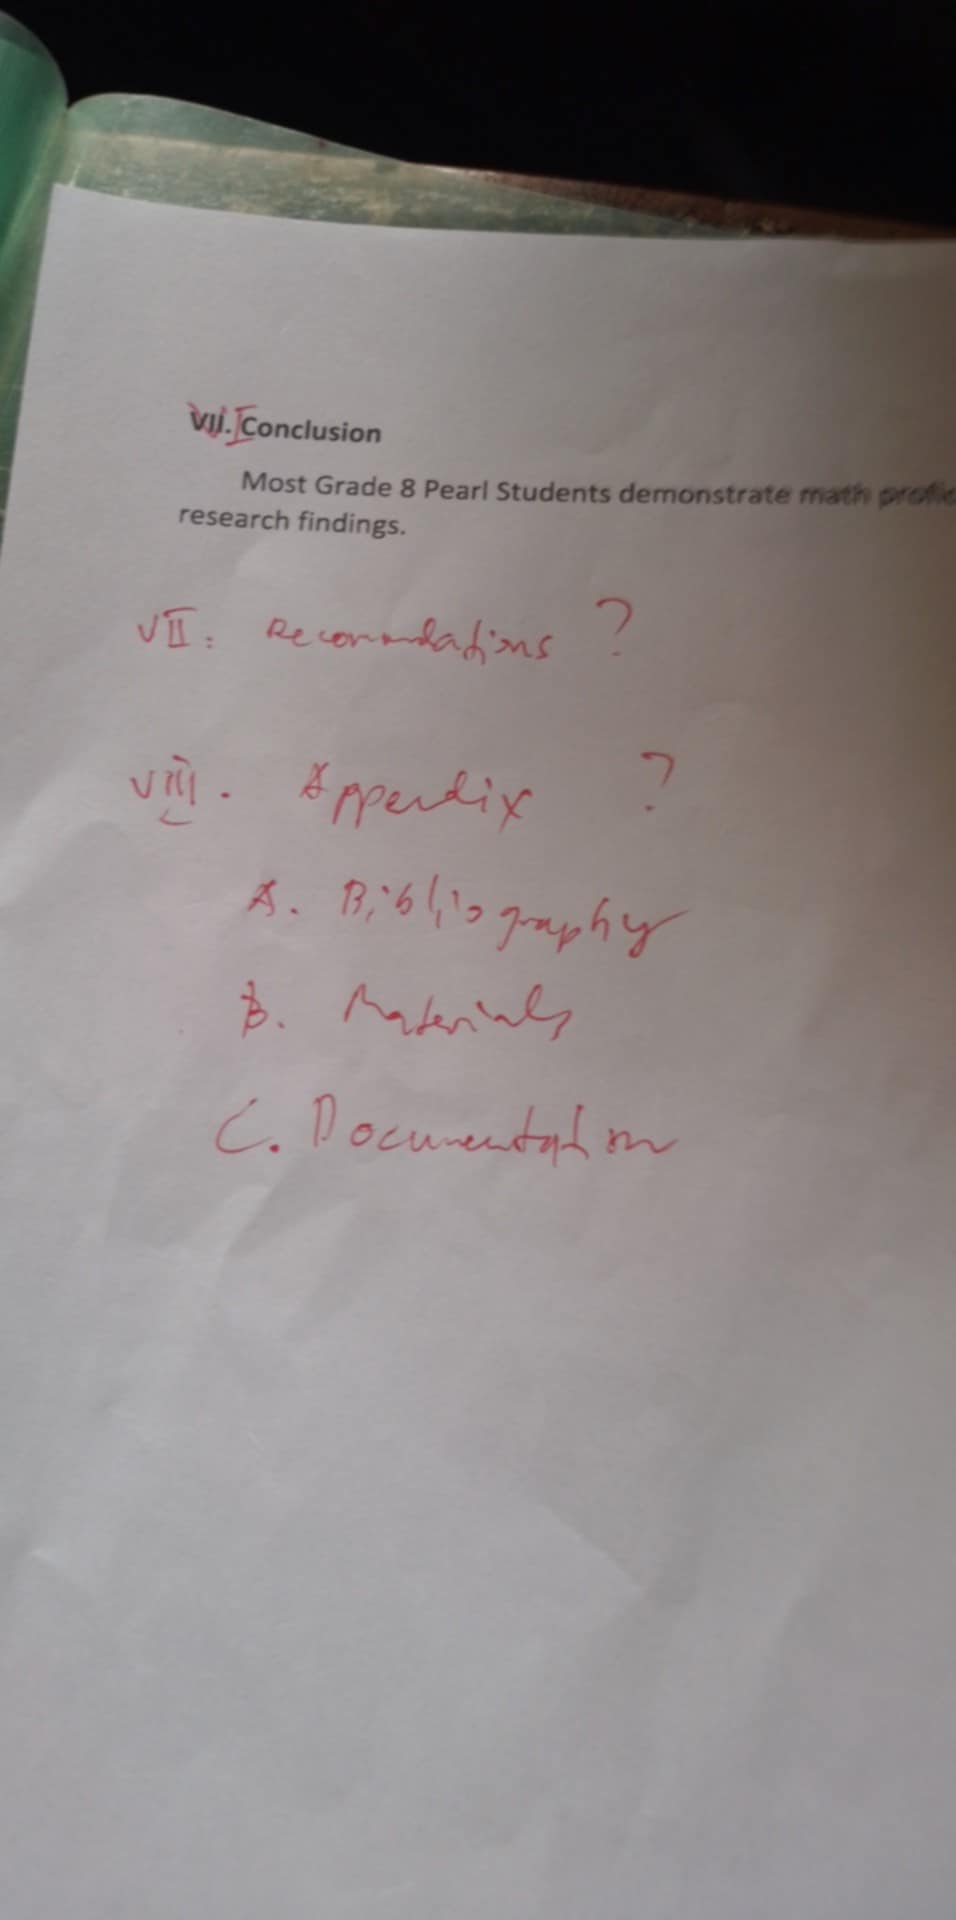 VII. Conclusion
Most Grade 8 Pearl Students demonstrate math profic
research findings.
VII. Recomondations ?
VIII. Appendix ?
A. Bibliography
B. Materials
C. Documentation